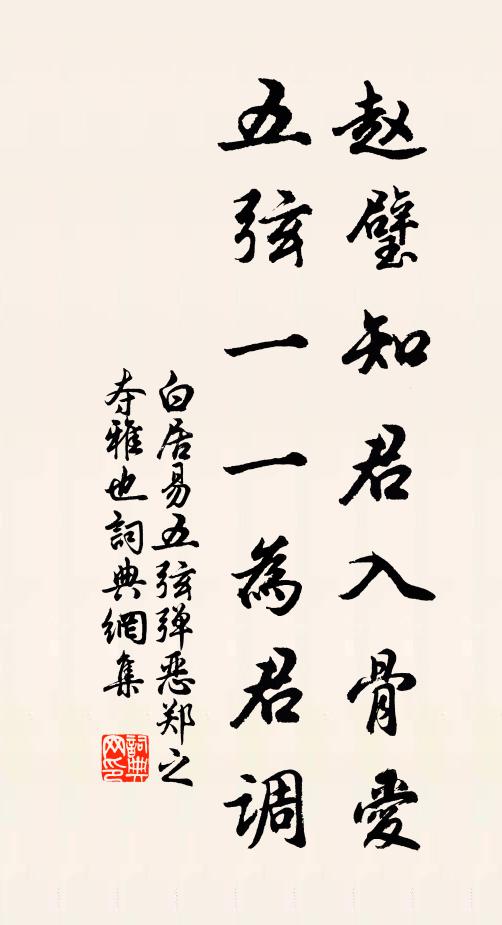 赵璧知君入骨愛
五弦一一為君調
白居易五弦弹恶郑之
夺雅也詞典網集
詞典网印